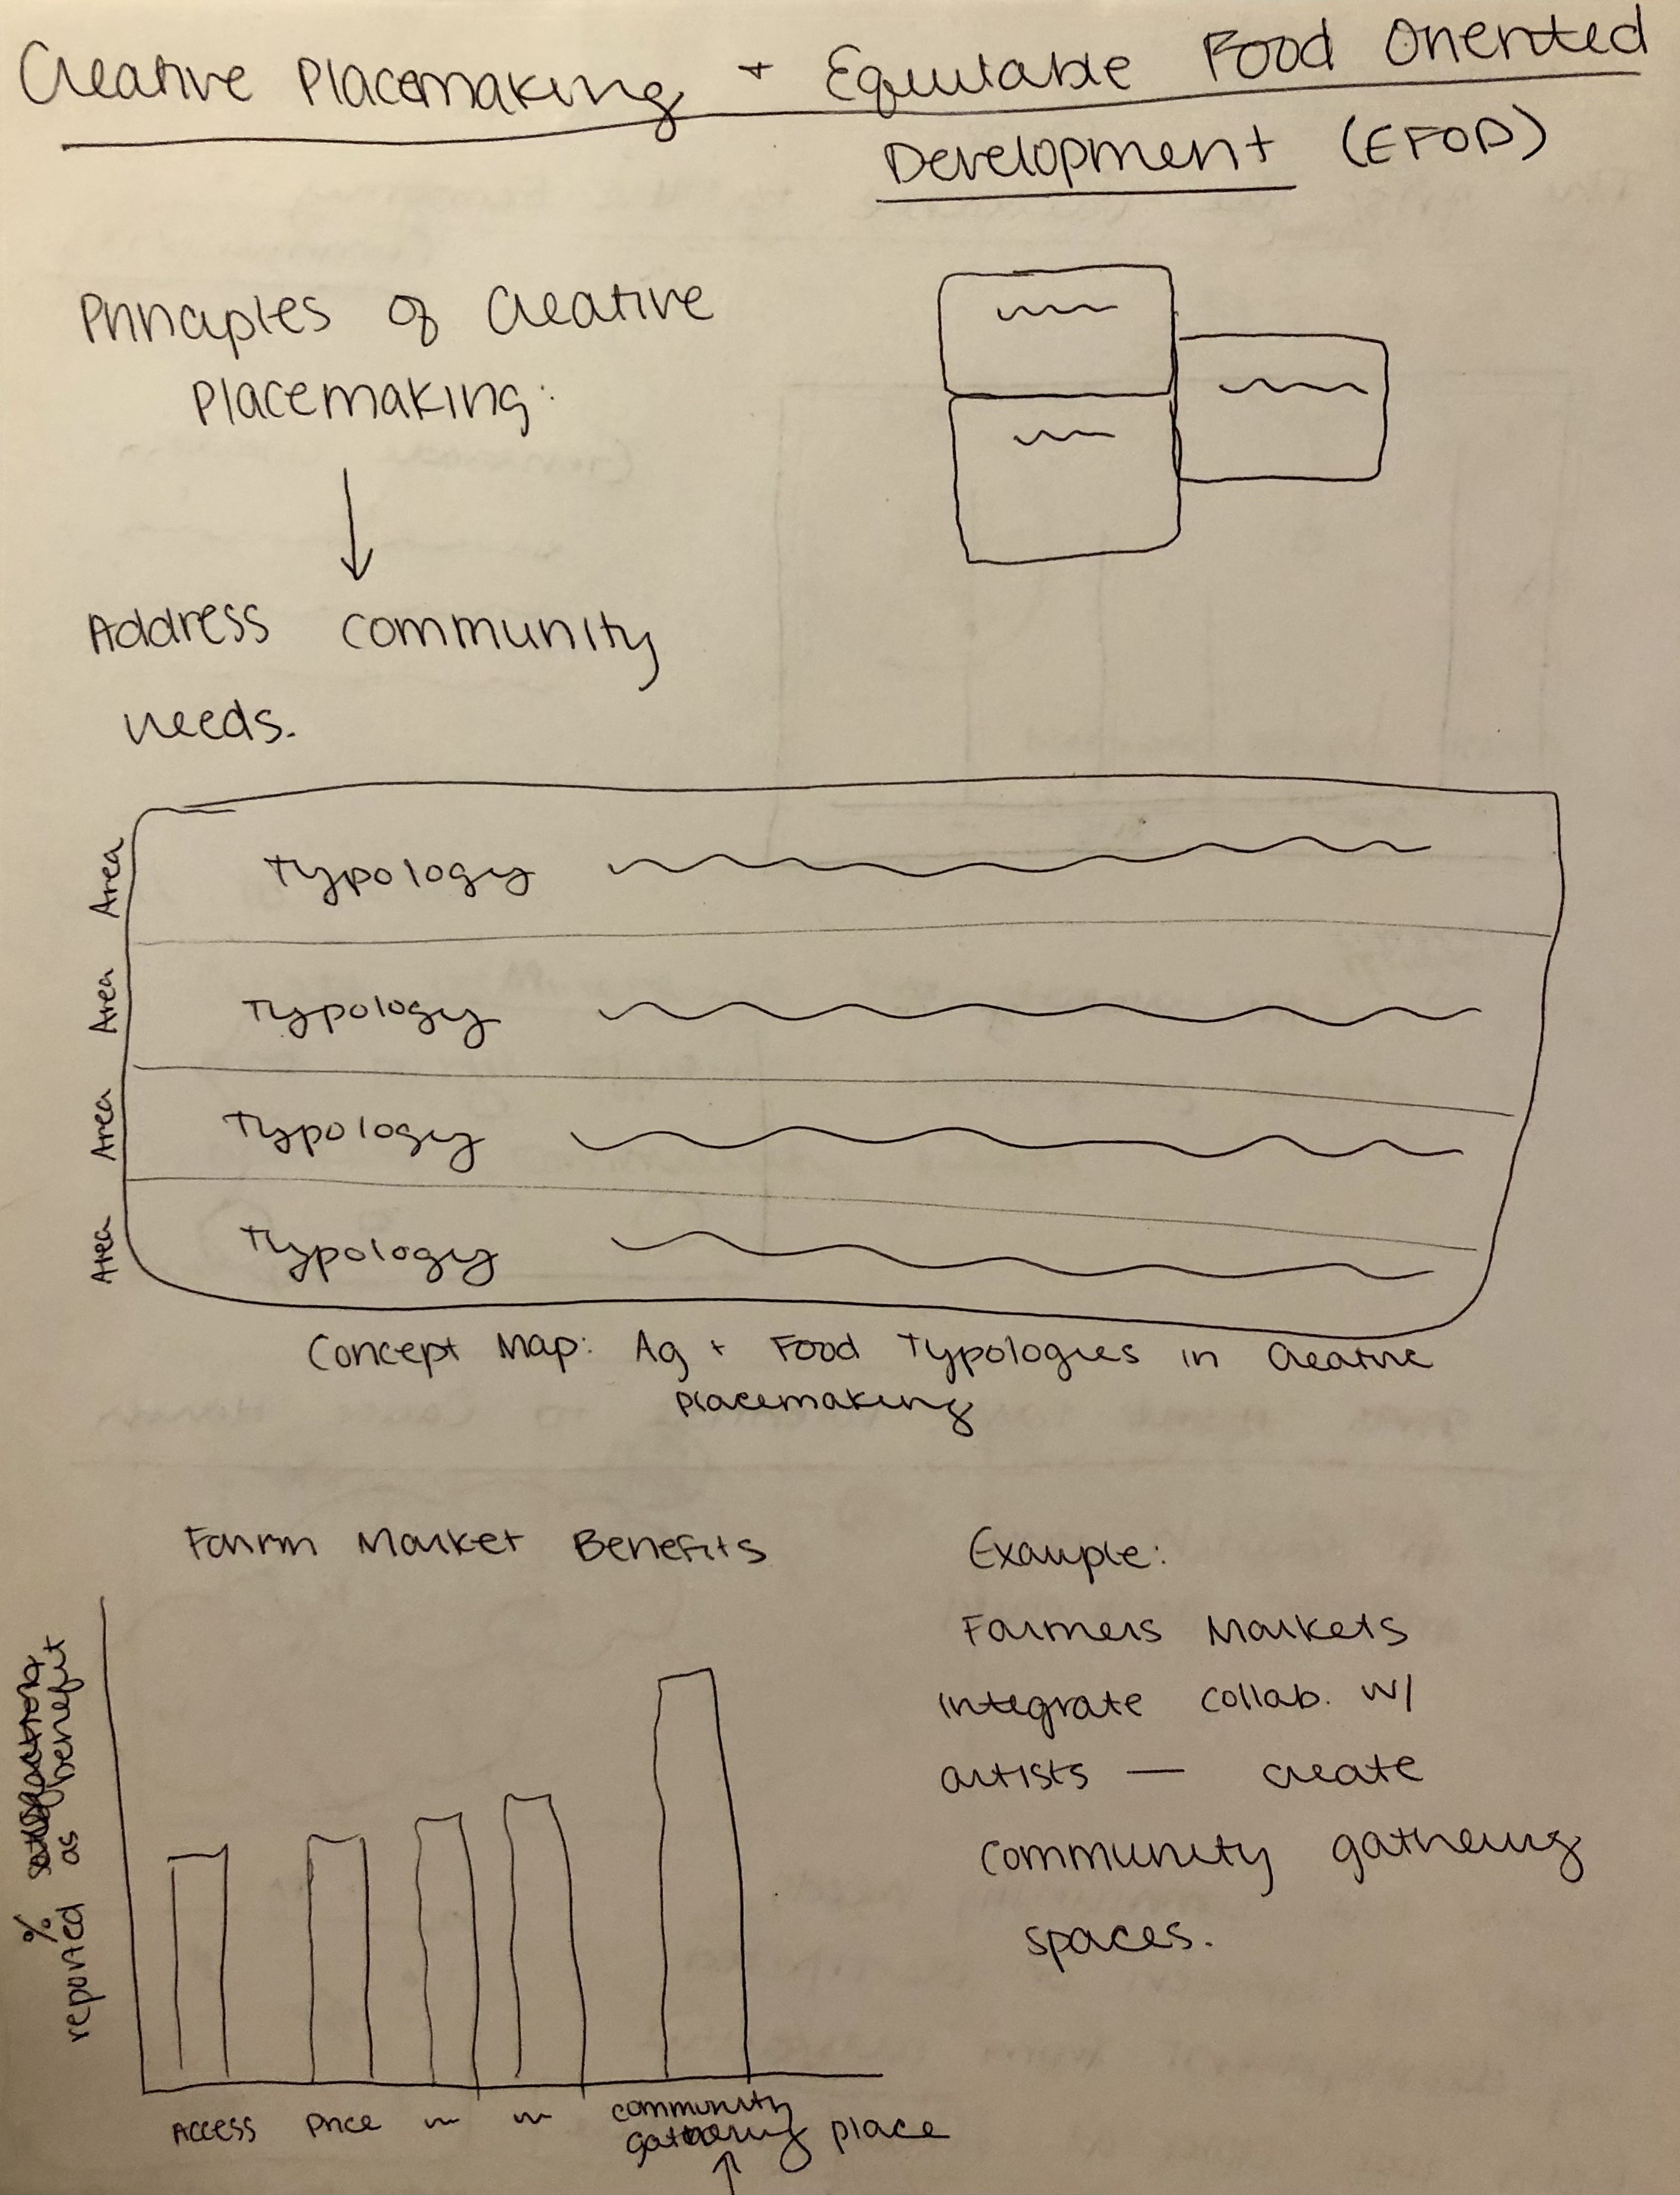 Creative Placemaking + Equitable Food Oriented
Development (EFOD)
Principles of Creative
Placemaking:
Address community
needs.
Area
Typology
Area
Typology
Area
Typology
Area
Typology
Concept Map: Ag + Food Typologies in Creative
placemaking
Farm Market Benefits
% reported as benefit
Access
Price
community
gathering place
Example:
Farmers Markets
integrate collab. w/
artists — create
community gathering
spaces.